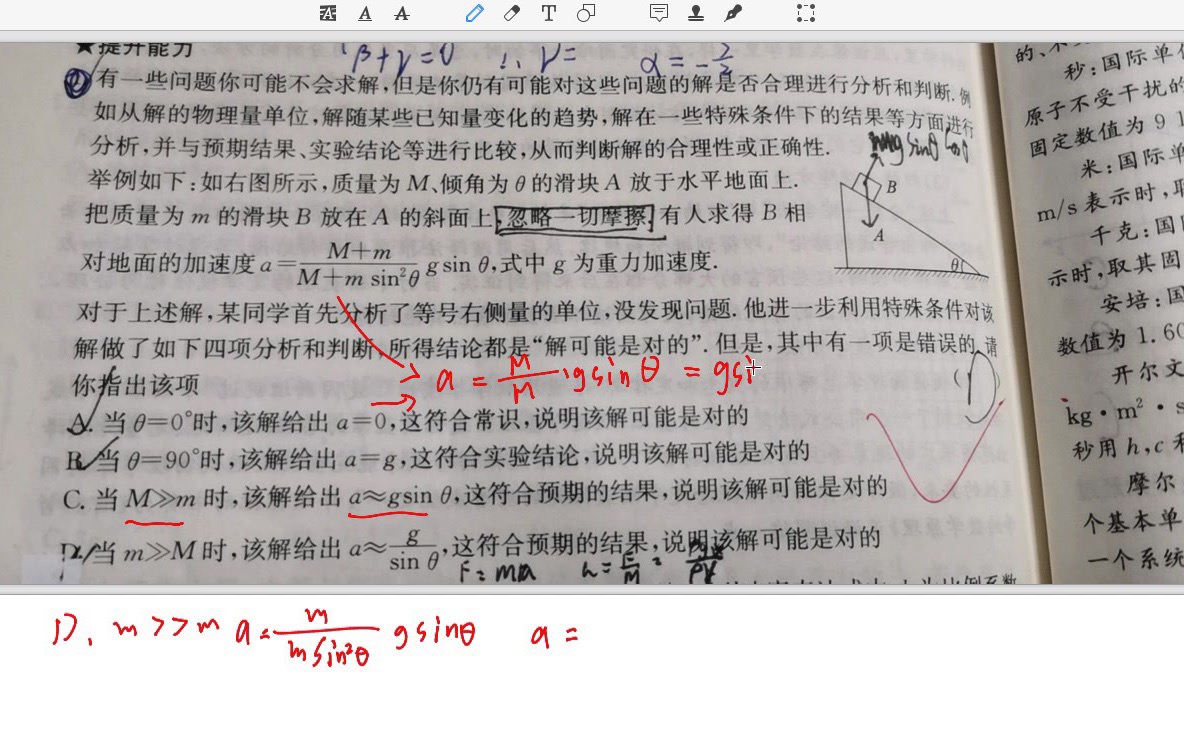 ★提升能力
β+γ=0 ∴ γ= α=-2/2
有一些问题你可能不会求解,但是你仍有可能对这些问题的解是否合理进行分析和判断.例
如从解的物理量单位,解随某些已知量变化的趋势,解在一些特殊条件下的结果等方面进行
分析,并与预期结果、实验结论等进行比较,从而判断解的合理性或正确性.
举例如下:如右图所示,质量为 M、倾角为 θ 的滑块 A 放于水平地面上.
把质量为 m 的滑块 B 放在 A 的斜面上,忽略一切摩擦,有人求得 B 相
对地面的加速度 a=(M+m)/(M+m sin²θ) g sin θ,式中 g 为重力加速度.
对于上述解,某同学首先分析了等号右侧量的单位,没发现问题.他进一步利用特殊条件对该
解做了如下四项分析和判断,所得结论都是“解可能是对的”.但是,其中有一项是错误的,请
你指出该项
a = M/M · gsinθ = gsi
A. 当 θ=0°时,该解给出 a=0,这符合常识,说明该解可能是对的
B. 当 θ=90°时,该解给出 a=g,这符合实验结论,说明该解可能是对的
C. 当 M≫m 时,该解给出 a≈gsin θ,这符合预期的结果,说明该解可能是对的
D. 当 m≫M 时,该解给出 a≈g/sin θ,这符合预期的结果,说明该解可能是对的
F=ma
B
A
θ
的、
秒:国际单
原子不受干扰的
固定数值为 9 1
米:国际单
m/s 表示时,取
千克:国
示时,取其固
安培:国
数值为 1.60
开尔文
kg·m²·s
秒用 h,c 和
摩尔
个基本单
一个系统
D. m>>m a=m/(m sin²θ) gsinθ a=